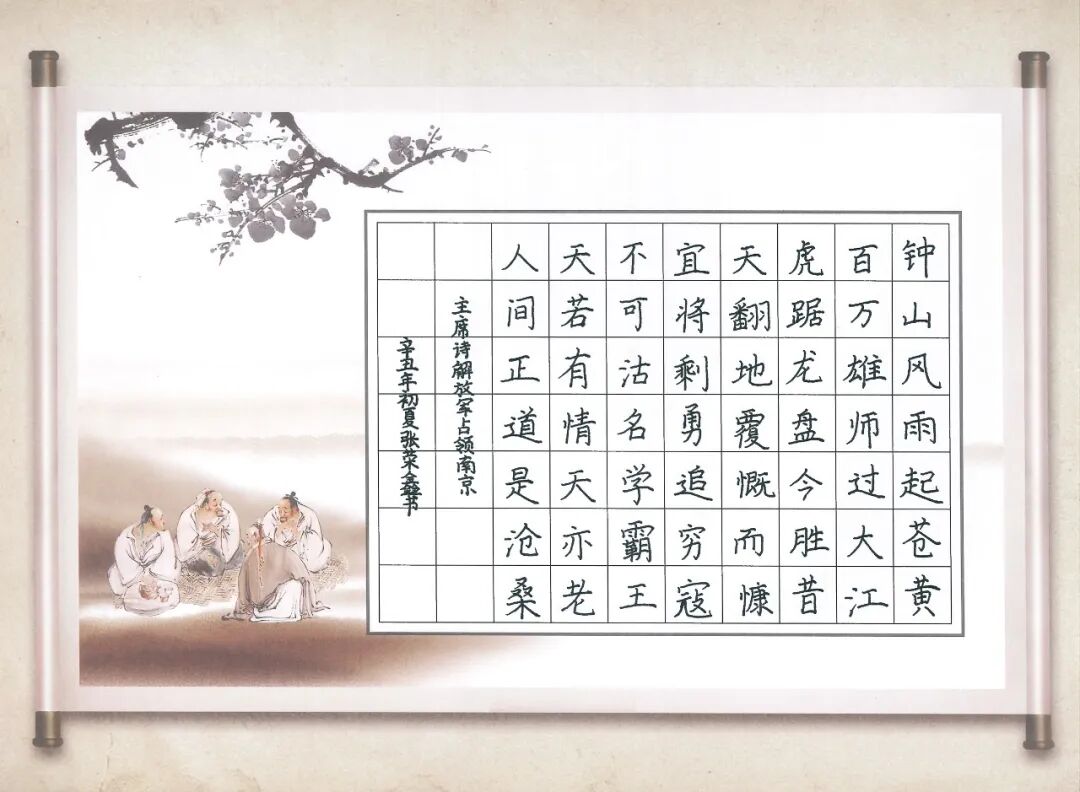 钟山风雨起苍黄
百万雄师过大江
虎踞龙盘今胜昔
天翻地覆慨而慷
宜将剩勇追穷寇
不可沽名学霸王
天若有情天亦老
人间正道是沧桑
主席诗解放军占领南京
辛丑年初夏张荣鑫书